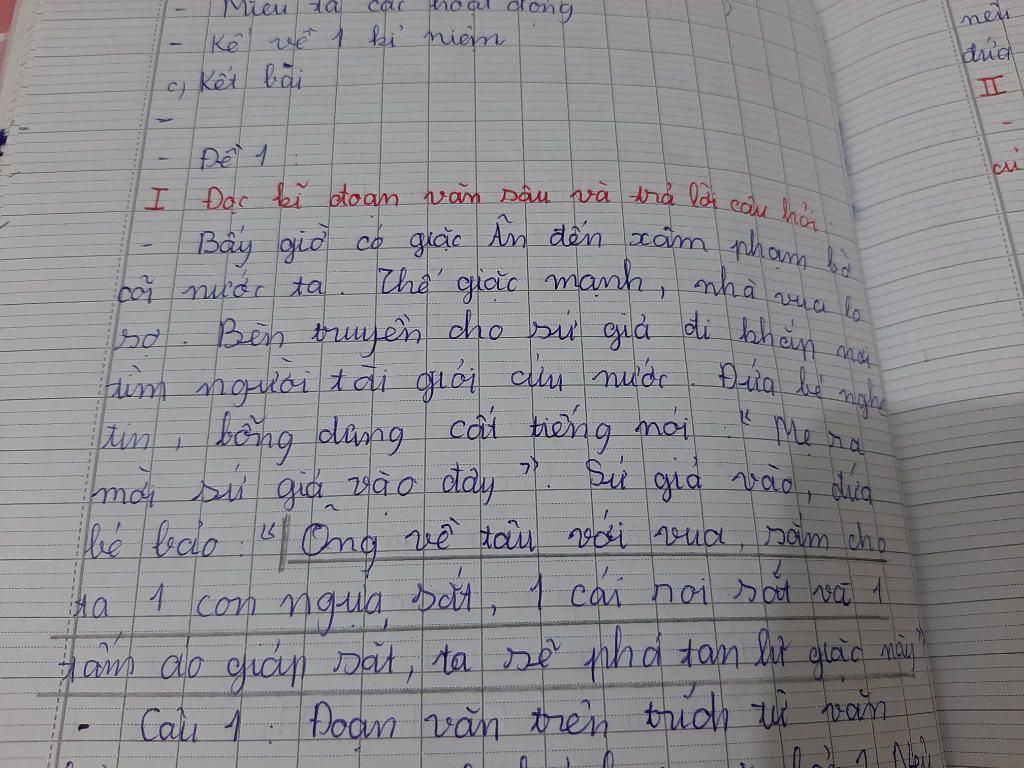 - Miêu tả các hoạt động
- Kể về 1 kỉ niệm
c, Kết bài
-
- Đề 1 :
I Đọc kĩ đoạn văn sau và trả lời câu hỏi.
- Bấy giờ có giặc Ân đến xâm phạm bờ
cõi nước ta. Thế giặc mạnh, nhà vua lo
sợ. Bèn truyền cho sứ giả đi khắp nơi
tìm người tài giỏi cứu nước. Đứa bé nghe
tin, bỗng dưng cất tiếng nói : " Mẹ ra
mời sứ giả vào đây". Sứ giả vào, đứa
bé bảo : " Ông về tâu với vua, sắm cho
ta 1 con ngựa sắt, 1 cái roi sắt và 1
tấm áo giáp sắt, ta sẽ phá tan lũ giặc này"
- Câu 1 : Đoạn văn trên trích từ văn
nên
đứa
II
-